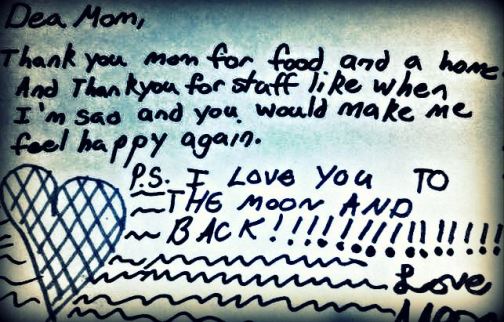 Dea Mom,
Thank you mom for food and a home
And Thankyou for staff like when
I'm sad and you would make me
feel happy again.
P.S. I LOVE YOU TO
THE MOON AND
BACK!!!!!!!!!!!!!!!
Love